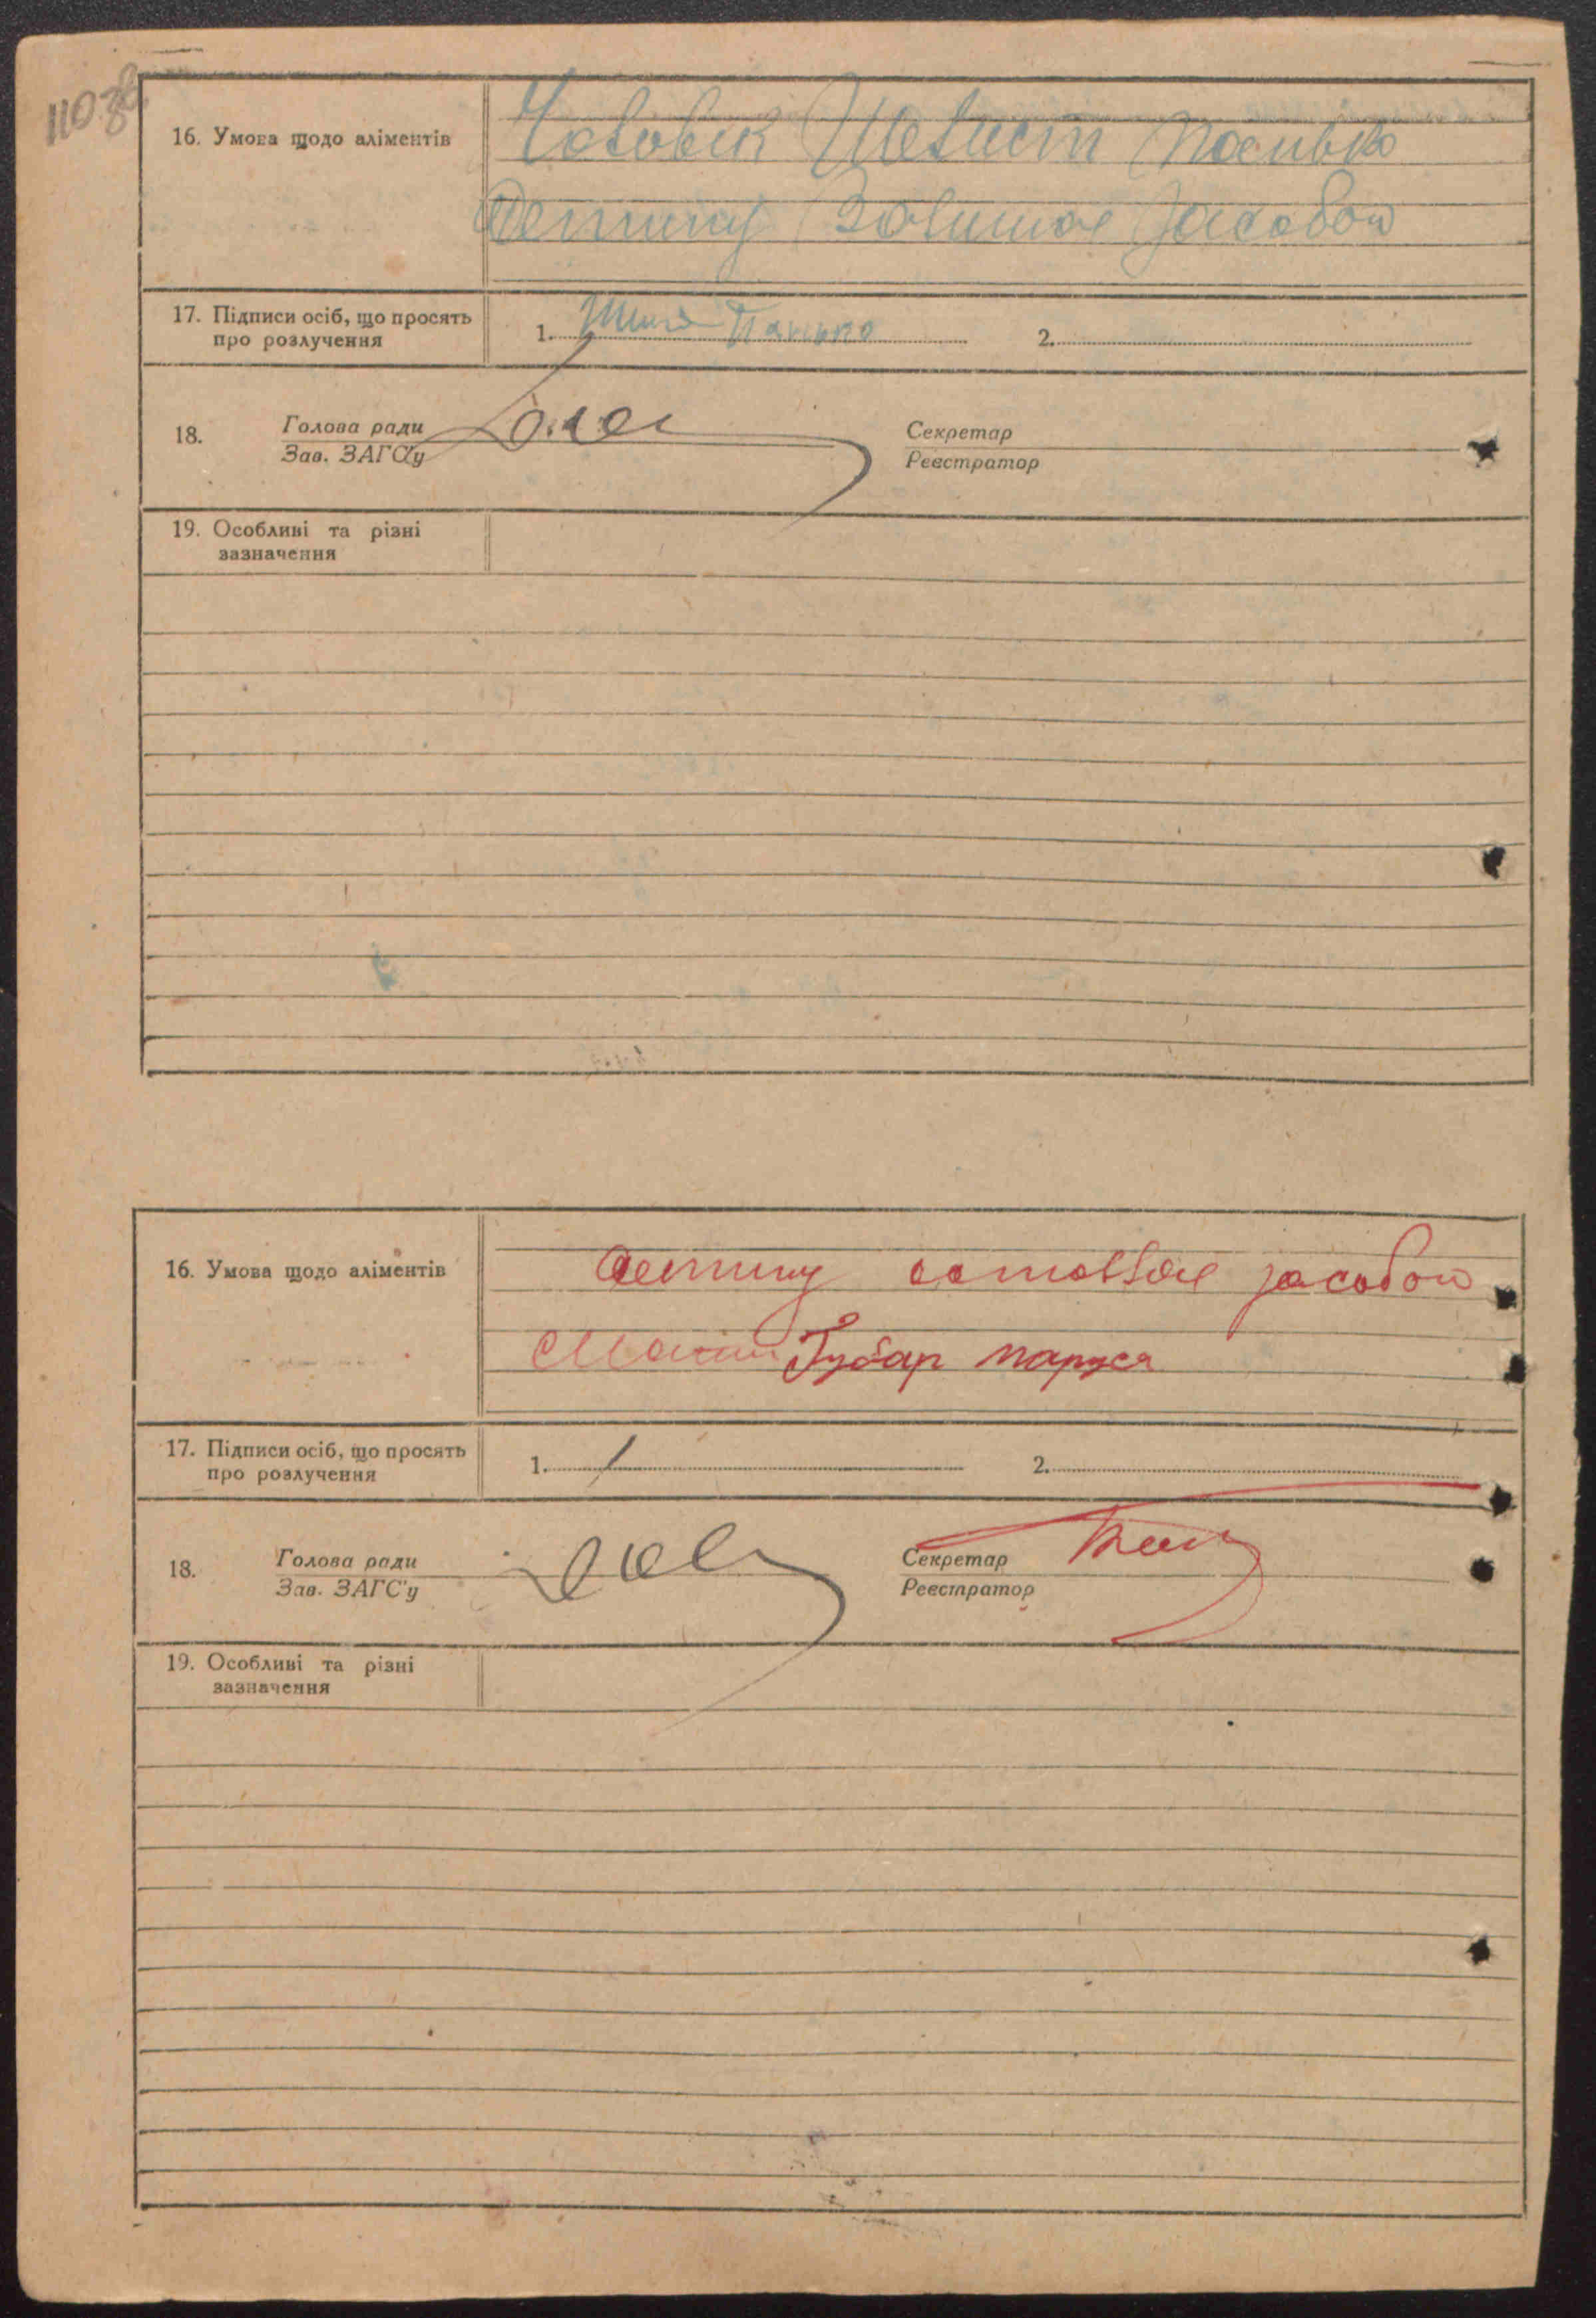 16. Умова щодо аліментів
Чоловік Шелист Панько
Детину Залишає засобою
17. Підписи осіб, що просять
про розлучення
1. Панько
2.
18.
Голова ради
Зав. ЗАГСу
Секретар
Реєстратор
19. Особливі та різні
зазначення
16. Умова щодо аліментів
Детину оставляє засобою
Мати Губар Маруся
17. Підписи осіб, що просять
про розлучення
1.
2.
18.
Голова ради
Зав. ЗАГС'у
Секретар
Реєстратор
19. Особливі та різні
зазначення